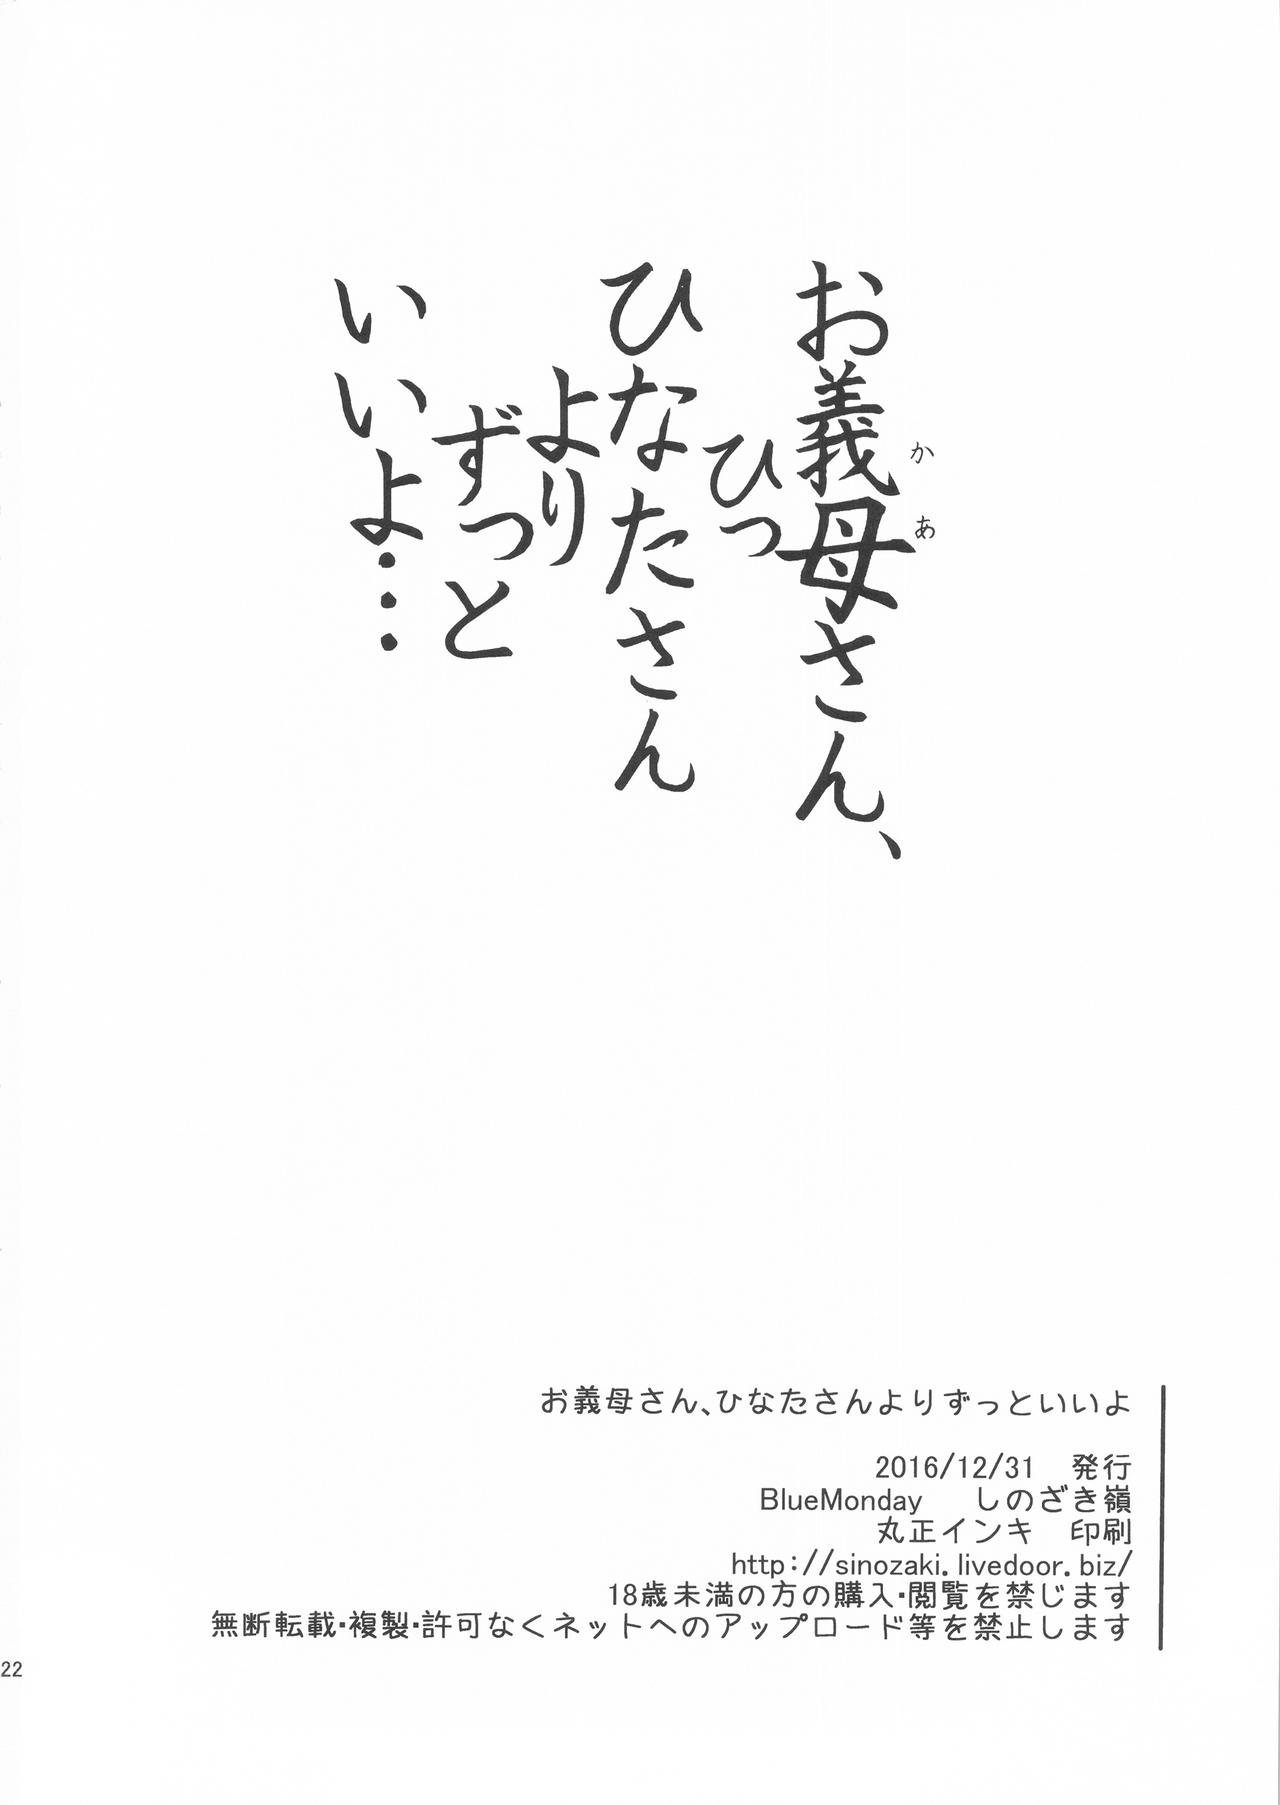 お義母さん、
かあ
ひっ
ひなたさん
より
ずっと
いいよ…
お義母さん、ひなたさんよりずっといいよ
2016/12/31　発行
BlueMonday　しのざき嶺
丸正インキ　印刷
http://sinozaki.livedoor.biz/
18歳未満の方の購入・閲覧を禁じます
無断転載・複製・許可なくネットへのアップロード等を禁止します
22